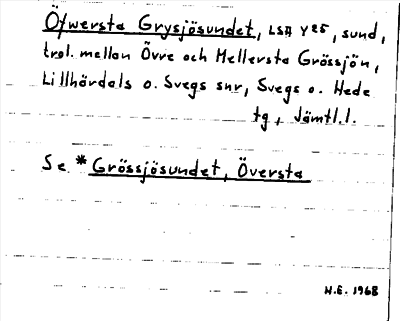 Öfwersta Grysjösundet, LSA Y25, sund,
trol. mellan Övre och Mellersta Grössjön,
Lillhärdals o. Svegs snr, Svegs o. Hede
tg, Jämtl.l.
Se *Grössjösundet, Översta
N.E. 1968